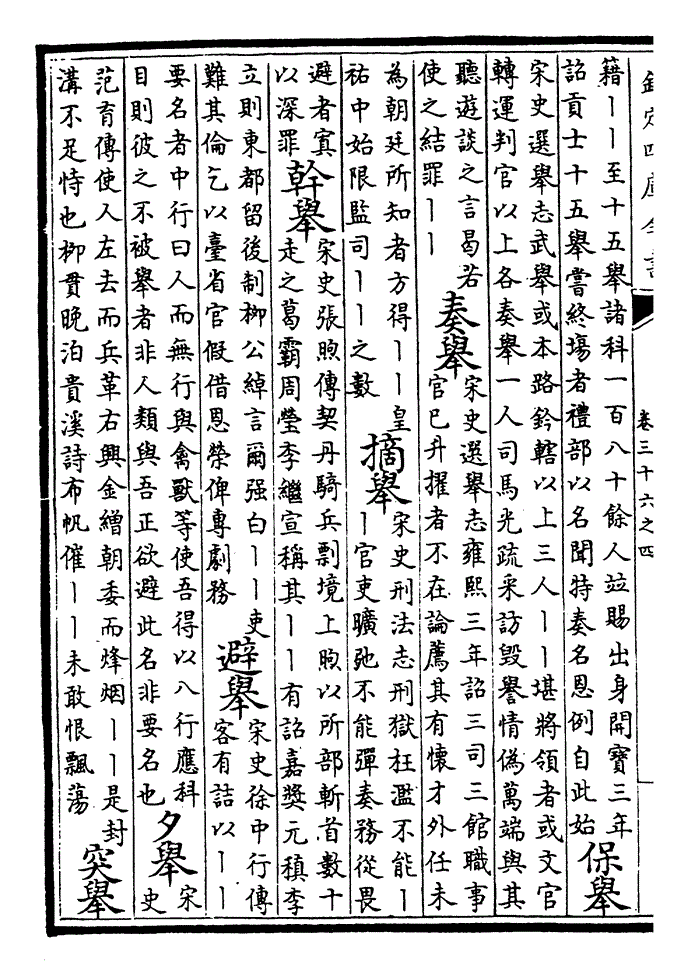 欽定四庫全書 卷三十六之四
籍丨丨至十五舉諸科一百八十餘人竝賜出身開寶三年
詔貢士十五舉嘗終塲者禮部以名聞特奏名恩例自此始
保舉
宋史選舉志武舉或本路鈐轄以上三人丨丨堪將領者或文官
轉運判官以上各奏舉一人司馬光疏采訪毀譽情偽萬端與其
聽遊談之言曷若
使之結罪丨丨
奏舉
宋史選舉志雍熙三年詔三司三館職事
官已升擢者不在論薦其有懷才外任未
為朝廷所知者方得丨丨皇
祐中始限監司丨丨之數
摘舉
宋史刑法志刑獄枉濫不能丨
丨官吏曠弛不能彈奏務從畏
避者寘
以深罪
幹舉
宋史張煦傳契丹騎兵剽境上煦以所部斬首數十
走之葛霸周瑩李繼宣稱其丨丨有詔嘉奬元稹李
立則東都留後制柳公綽言爾强白丨丨吏
難其倫乞以臺省官假借恩榮俾專劇務
避舉
宋史徐中行傳
客有詰以丨丨
要名者中行曰人而無行與禽獸等使吾得以八行應科
目則彼之不被舉者非人類與吾正欲避此名非要名也
夕舉
宋
史
范育傳使人左去而兵革右興金繒朝委而烽烟丨丨是封
溝不足恃也柳貫晚泊貴溪詩布帆催丨丨未敢恨飄蕩
突舉